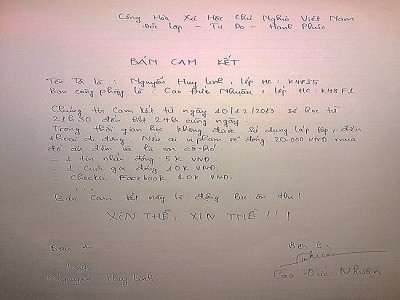 Cộng Hòa Xã Hội Chủ Nghĩa Việt Nam
Độc Lập - Tự Do - Hạnh Phúc
BẢN CAM KẾT
Tên Tớ là : Nguyễn Huy Linh , lớp HC : K48
Bạn cùng phòng là : Cao Đức Nhuân , lớp HC : K48F1
Chúng tôi Cam kết từ ngày 10/12/2013 sẽ học từ
21h30 đến hết 24h cùng ngày.
Trong thời gian học không được sử dụng lap top, điện
thoại di động. Nếu ai vi phạm sẽ đóng 20.000 VND mua
đồ ăn đêm và là con
- 1 tin nhắn đóng 5K VND
- 1 cuộc gọi đóng 10K VND.
- Checkin Facebook 10K VND.
...
Bản cam kết này là động lực ôn thi!
XIN THỀ, XIN THỀ !!!
Bên A
Linh
Nguyễn Huy Linh
Bên B
Cao Đức Nhuân